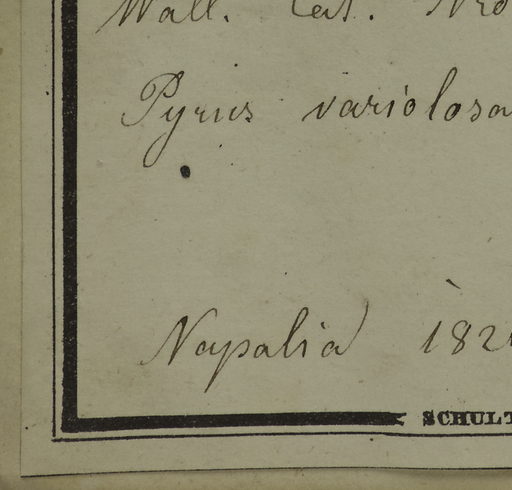 Wall. Cat. Nro
Pyrus variolosa
Napalia 182
SCHULT